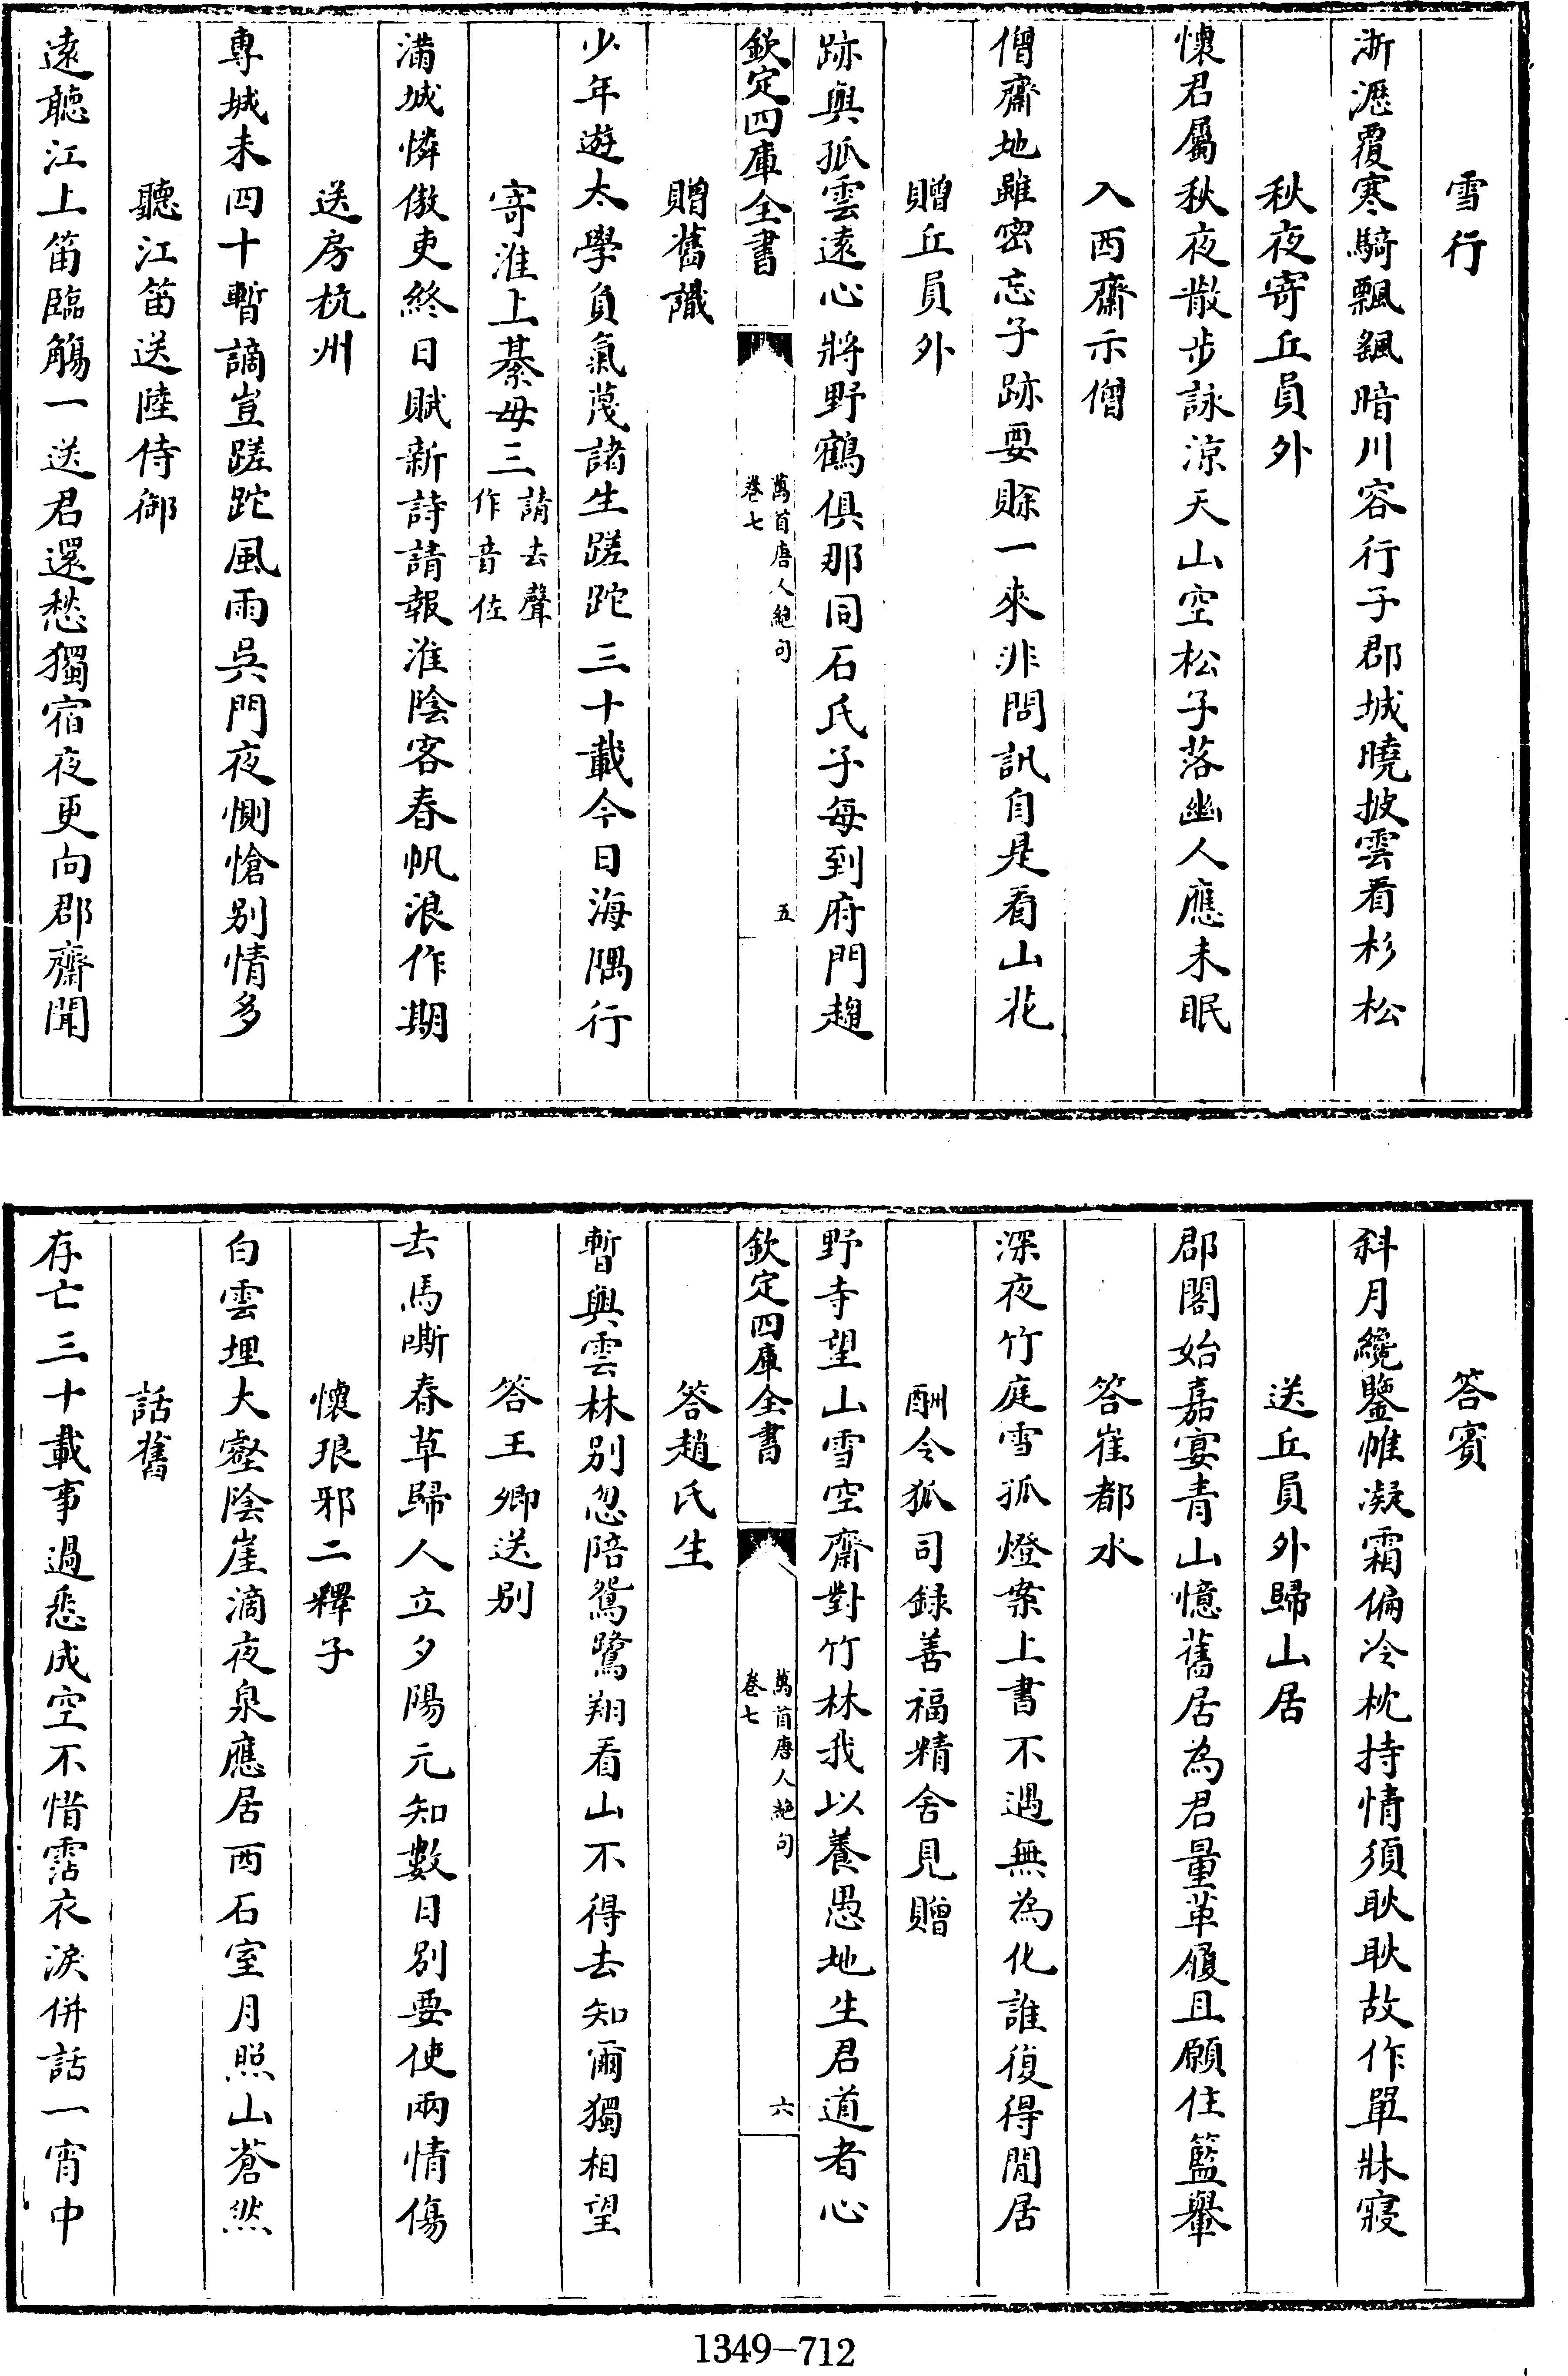 雪行
淅瀝覆寒騎飄飖暗川容行子郡城曉披雲看杉松
秋夜寄丘員外
懷君屬秋夜散步詠涼天山空松子落幽人應未眠
入西齋示僧
僧齋地雖密忘子跡要賒一來非問訊自是看山花
贈丘員外
跡與孤雲遠心將野鶴俱那同石氏子每到府門趨
欽定四庫全書
萬首唐人絶句
卷七
五
贈舊識
少年遊太學負氣蔑諸生蹉跎三十載今日海隅行
寄淮上綦毋三
請去聲
作音佐
滿城憐傲吏終日賦新詩請報淮陰客春帆浪作期
送房杭州
專城未四十暫謫豈蹉跎風雨吳門夜惻愴别情多
聽江笛送陸侍御
遠聽江上笛臨觴一送君還愁獨宿夜更向郡齋聞
答賓
斜月纔鑒帷凝霜偏冷枕持情須耿耿故作單牀寢
送丘員外歸山居
郡閣始嘉宴青山憶舊居為君量革履且願住籃轝
答崔都水
深夜竹庭雪孤燈案上書不遇無為化誰復得閒居
酬令狐司録善福精舍見贈
野寺望山雪空齋對竹林我以養愚地生君道者心
欽定四庫全書
萬首唐人絶句
卷七
六
答趙氏生
暫與雲林别忽陪鴛鷺翔看山不得去知爾獨相望
答王卿送别
去馬嘶春草歸人立夕陽元知數日别要使兩情傷
懷琅邪二釋子
白雲埋大壑陰崖滴夜泉應居西石室月照山蒼然
話舊
存亡三十載事過悉成空不惜霑衣淚併話一宵中
1349-712